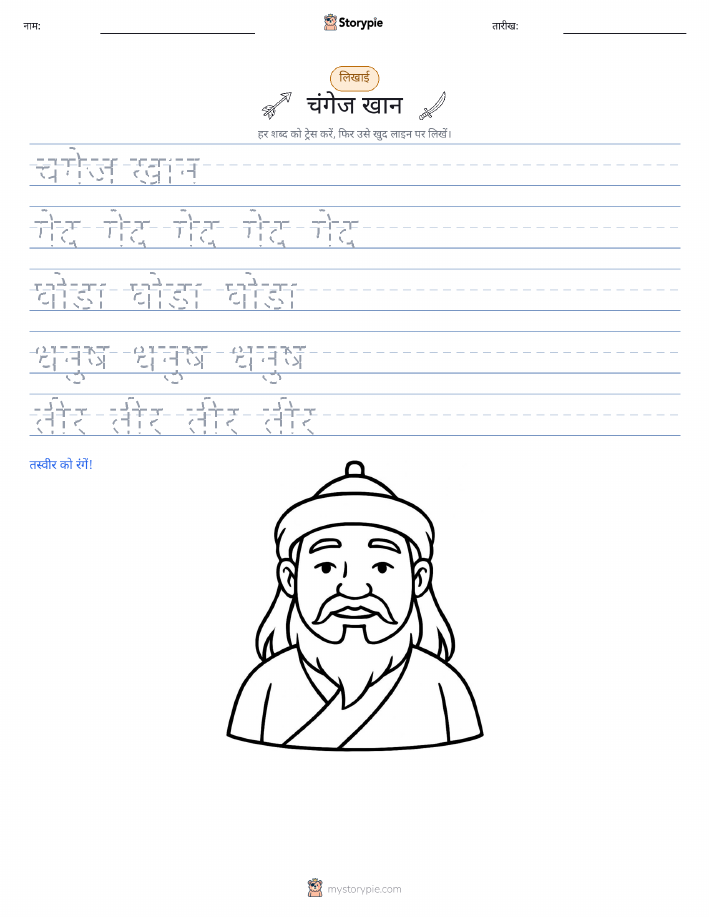 नाम:
Storypie
तारीख:
लिखाई
चंगेज खान
हर शब्द को ट्रेस करें, फिर उसे खुद लाइन पर लिखें।
चंगेज खान
गेंद गेंद गेंद गेंद गेंद
घोड़ा घोड़ा घोड़ा
धनुष धनुष धनुष
तीर तीर तीर तीर
तस्वीर को रंगें!
mystorypie.com